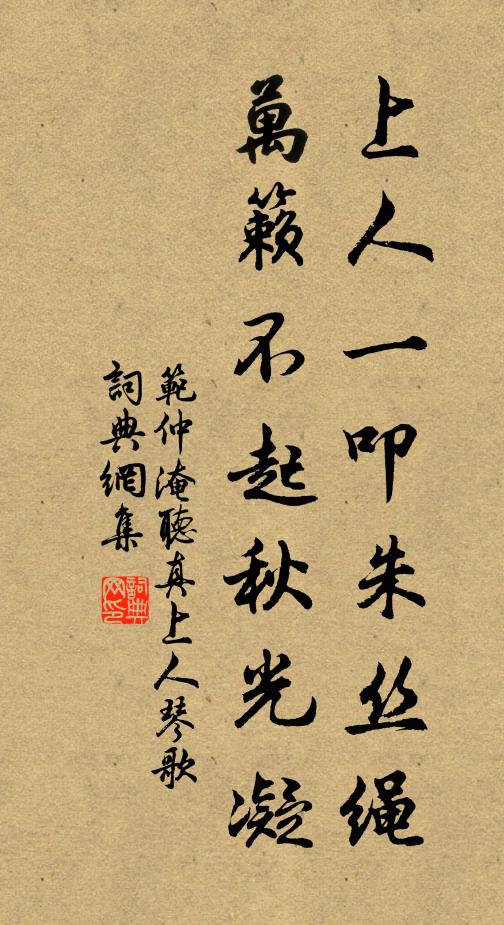 上人一叩朱丝绳
萬籟不起秋光凝
範仲淹聽真上人琴歌
詞典網集
詞典网印